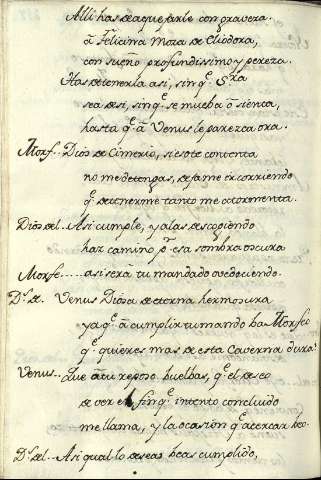 Alli has de aqueparle con graveza.
â Feliçina Moza de Eliodora,
con sueño profundissimo y pereza.
Has detenerla asi, sin q.e S.ra
sea de si, sin q.e se mueba ô sienta,
hasta q.e â Venus le parezca ora.
Morf... Dios de Cimerio, si esto te contenta
no me detengas, dexame ir corriendo
q.e detenerme tanto me atormenta.
Dios del. Asi cumple, y alas descogiendo
haz camino p.r esa sombra oscura
Morfe.... asi serâ tu mandado ovedeciendo.
D.s de. Venus Diosa de eterna hermosura
ya q.e â cumplir tu mando ba Morfeo
q.e quieres mas de esta Caverna dura?
Venus... Que â tu reposo buelbas, q.e el deseo
de ver el fin q.e intento concluido
me llama, y la ocasion q.e acercar beo.
D.s del.. Asi qual lo deseas beas cumplido,